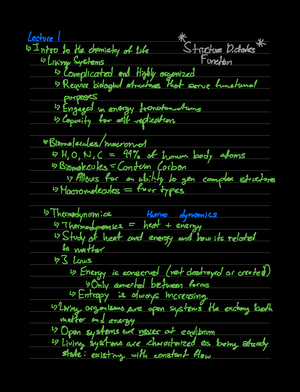 Lecture 1
Intro to the chemistry of life
* Structure Dictates Function *
Living Systems
Complicated and Highly organized
Require biological structures that serve functional
purposes
Engaged in energy transformations
Capacity for self replication
Biomolecules/macromol
H, O, N, C = 99% of human body atoms
Biomolecules = Contain Carbon
Allows for an ability to gen complex structures
Macromolecules = four types
Thermodynamics
thermo dynamics
Thermodynamics = heat + energy
Study of heat and energy and how its related
to matter
3 Laws
Energy is conserved (not destroyed or created)
Only converted between forms
Entropy is always increasing
Living organisms are open systems the exchang both
matter and energy
Open systems are never at equilibrium
Living systems are characterized as being steady
state: existing with constant flow